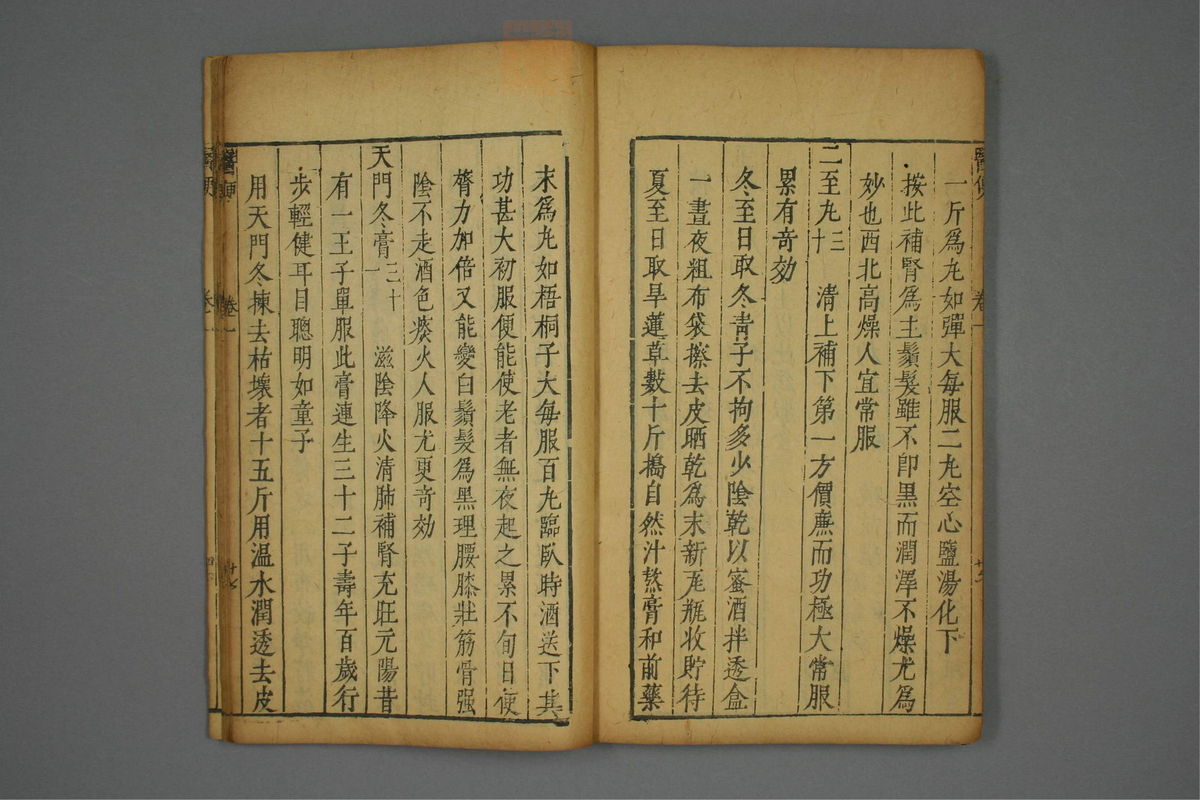 一斤爲丸如彈大每服二丸空心鹽湯化下
按此補腎爲主鬚髮雖不卽黑而潤澤不燥尤爲
妙也西北高燥人宜常服
二至丸三十 清上補下第一方價廉而功極大常服
累有奇効
冬至日取冬青子不拘多少陰乾以蜜酒拌透盒
一晝夜粗布袋擦去皮晒乾爲末新瓦瓶收貯待
夏至日取旱蓮草數十斤搗自然汁熬膏和前藥
末爲丸如梧桐子大每服百丸臨臥時酒送下其
功甚大初服便能使老者無夜起之累不旬日便
膂力加倍又能變白鬚髮爲黑理腰膝壯筋骨强
陰不走酒色痰火人服尤更奇効
天門冬膏三十一 滋陰降火清肺補腎充旺元陽昔
有一王子單服此膏連生三十二子壽年百歲行
步輕健耳目聰明如童子
用天門冬揀去枯壞者十五斤用温水潤透去皮
醫便 卷一